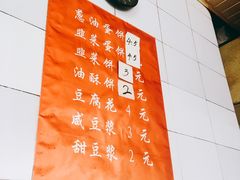 葱油蛋饼 4.5
韭菜蛋饼 4.5
韭菜饼 3元
油酥饼 2元
豆腐花 4元
咸豆浆 3元
甜豆浆 2元